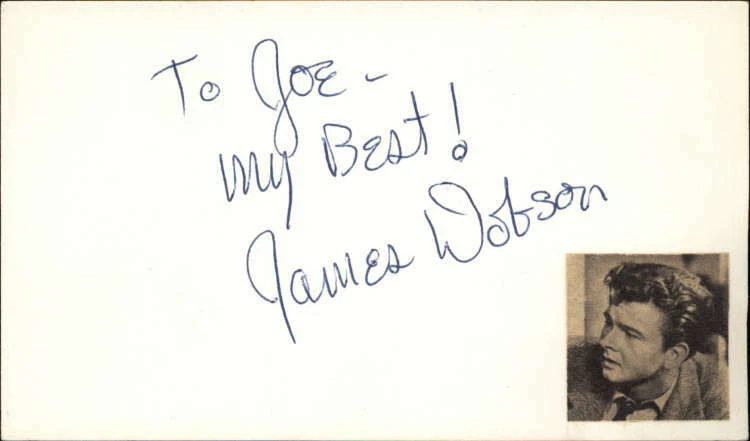 To Joe -
My Best!
James Dobson